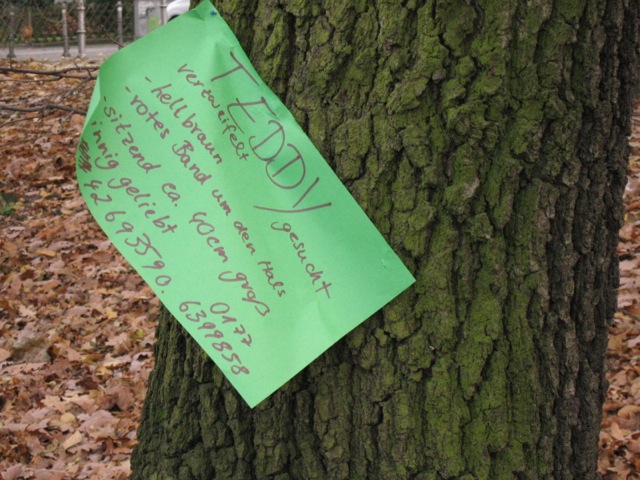 TEDDY
verzweifelt gesucht
- hellbraun
- rotes Band um den Hals
- sitzend ca. 40cm groß
innig geliebt
42693590, 0177
6399858